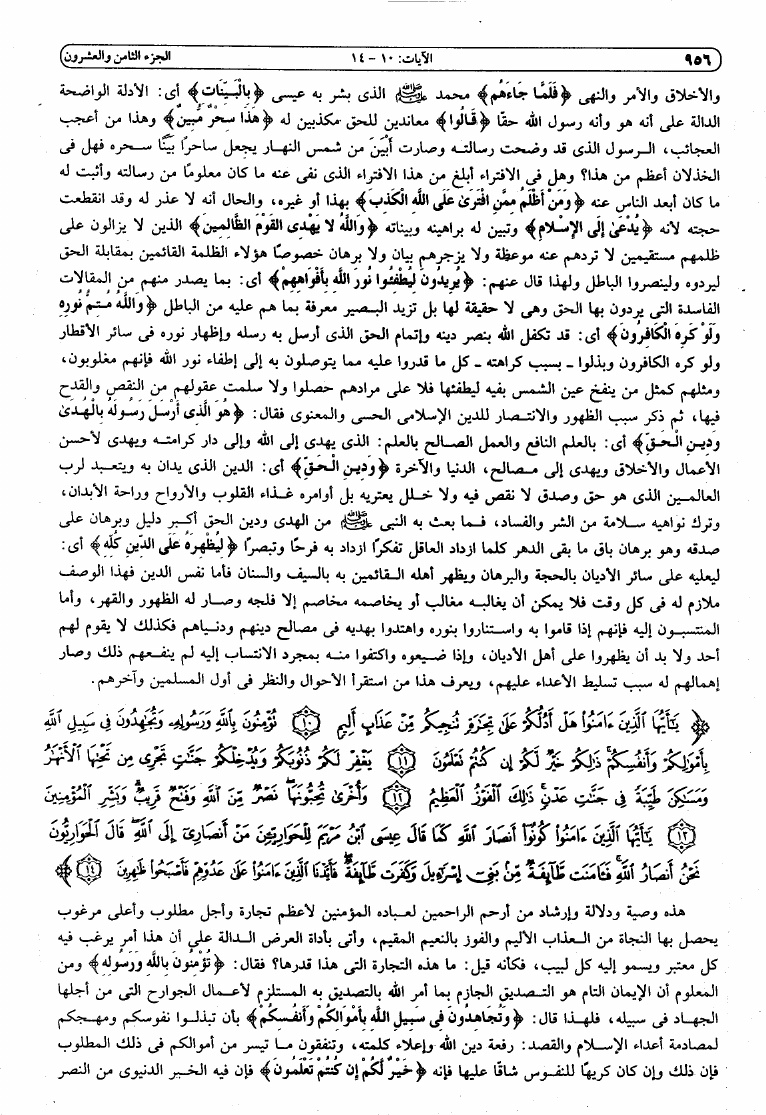 ٩٥٦ الآيات: ١٠ - ١٤ الجزء الثامن والعشرون
والأخلاق والأمر والنهى ﴿فَلَمَّا جَاءَهُم﴾ محمد ﷺ الذى بشر به عيسى ﴿بِالْبَيِّنَاتِ﴾ أى: الأدلة الواضحة
الدالة على أنه هو وأنه رسول الله حقًا ﴿قَالُوا﴾ معاندين للحق مكذبين له ﴿هَذَا سِحْرٌ مُّبِينٌ﴾ وهذا من أعجب
العجائب، الرسول الذى قد وضحت رسالته وصارت أَبْيَنَ من شمس النهار يجعل ساحرًا بَيِّنًا سحره فهل فى
الخذلان أعظم من هذا؟ وهل فى الافتراء أبلغ من هذا الافتراء الذى نفى عنه ما كان معلومًا من رسالته وأثبت له
ما كان أبعد الناس عنه ﴿وَمَنْ أَظْلَمُ مِمَّنِ افْتَرَى عَلَى اللَّهِ الْكَذِبَ﴾ بهذا أو غيره، والحال أنه لا عذر له وقد انقطعت
حجته لأنه ﴿يُدْعَى إِلَى الإِسْلامِ﴾ وتبين له براهينه وبيناته ﴿وَاللَّهُ لا يَهْدِى الْقَوْمَ الظَّالِمِينَ﴾ الذين لا يزالون على
ظلمهم مستقيمين لا تردهم عنه موعظة ولا يزجرهم بيان ولا برهان خصوصًا هؤلاء الظلمة القائمين بمقابلة الحق
ليردوه ولينصروا الباطل ولهذا قال عنهم: ﴿يُرِيدُونَ لِيُطْفِئُوا نُورَ اللَّهِ بِأَفْوَاهِهِمْ﴾ أى: بما يصدر منهم من المقالات
الفاسدة التى يردون بها الحق وهى لا حقيقة لها بل تزيد البصير معرفة بما هم عليه من الباطل ﴿وَاللَّهُ مُتِمُّ نُورِهِ
وَلَوْ كَرِهَ الْكَافِرُونَ﴾ أى: قد تكفل الله بنصر دينه وإتمام الحق الذى أرسل به رسله وإظهار نوره فى سائر الأقطار
ولو كره الكافرون وبذلوا ـ بسبب كراهته ـ كل ما قدروا عليه مما يتوصلون به إلى إطفاء نور الله فإنهم مغلوبون،
ومثلهم كمثل من ينفخ عين الشمس بفيه ليطفئها فلا على مرادهم حصلوا ولا سلمت عقولهم من النقص والقدح
فيها، ثم ذكر سبب الظهور والانتصار للدين الإسلامى الحسى والمعنوى فقال: ﴿هُوَ الَّذِى أَرْسَلَ رَسُولَهُ بِالْهُدَىٰ
وَدِينِ الْحَقِّ﴾ أى: بالعلم النافع والعمل الصالح بالعلم: الذى يهدى إلى الله وإلى دار كرامته ويهدى لأحسن
الأعمال والأخلاق ويهدى إلى مصالح، الدنيا والآخرة ﴿وَدِينِ الْحَقِّ﴾ أى: الدين الذى يدان به ويتعبد لرب
العالمين الذى هو حق وصدق لا نقص فيه ولا خلل يعتريه بل أوامره غذاء القلوب والأرواح وراحة الأبدان،
وترك نواهيه سلامة من الشر والفساد، فما بعث به النبى ﷺ من الهدى ودين الحق أكبر دليل وبرهان على
صدقه وهو برهان باق ما بقى الدهر كلما ازداد العاقل تفكرًا ازداد به فرحًا وتبصرًا ﴿لِيُظْهِرَهُ عَلَى الدِّينِ كُلِّهِ﴾ أى:
ليعليه على سائر الأديان بالحجة والبرهان ويظهر أهله القائمين به بالسيف والسنان فأما نفس الدين فهذا الوصف
ملازم له فى كل وقت فلا يمكن أن يغالبه مغالب أو يخاصمه مخاصم إلا فلجه وصار له الظهور والقهر، وأما
المنتسبون إليه فإنهم إذا قاموا به واستناروا بنوره واهتدوا بهديه فى مصالح دينهم ودنياهم فكذلك لا يقوم لهم
أحد ولا بد أن يظهروا على أهل الأديان، وإذا ضيعوه واكتفوا منه بمجرد الانتساب إليه لم ينفعهم ذلك وصار
إهمالهم له سبب تسليط الأعداء عليهم، ويعرف هذا من استقرأ الأحوال والنظر فى أول المسلمين وآخرهم.
﴿يَٰٓأَيُّهَا الَّذِينَ ءَامَنُوا هَلْ أَدُلُّكُمْ عَلَىٰ تِجَٰرَةٍ تُنجِيكُم مِّنْ عَذَابٍ أَلِيمٍ ١٠ تُؤْمِنُونَ بِاللَّهِ وَرَسُولِهِ وَتُجَٰهِدُونَ فِي سَبِيلِ اللَّهِ
بِأَمْوَٰلِكُمْ وَأَنفُسِكُمْ ذَٰلِكُمْ خَيْرٌ لَّكُمْ إِن كُنتُمْ تَعْلَمُونَ ١١ يَغْفِرْ لَكُمْ ذُنُوبَكُمْ وَيُدْخِلْكُمْ جَنَّٰتٍ تَجْرِي مِن تَحْتِهَا الْأَنْهَٰرُ
وَمَسَٰكِنَ طَيِّبَةً فِي جَنَّٰتِ عَدْنٍ ذَٰلِكَ الْفَوْزُ الْعَظِيمُ ١٢ وَأُخْرَىٰ تُحِبُّونَهَا نَصْرٌ مِّنَ اللَّهِ وَفَتْحٌ قَرِيبٌ وَبَشِّرِ الْمُؤْمِنِينَ
١٣ يَٰٓأَيُّهَا الَّذِينَ ءَامَنُوا كُونُوا أَنصَارَ اللَّهِ كَمَا قَالَ عِيسَى ابْنُ مَرْيَمَ لِلْحَوَارِيِّنَ مَنْ أَنصَارِي إِلَى اللَّهِ قَالَ الْحَوَارِيُّونَ
نَحْنُ أَنصَارُ اللَّهِ فَـَٔامَنَت طَّآئِفَةٌ مِّنۢ بَنِي إِسْرَٰٓءِيلَ وَكَفَرَت طَّآئِفَةٌ فَأَيَّدْنَا الَّذِينَ ءَامَنُوا عَلَىٰ عَدُوِّهِمْ فَأَصْبَحُوا ظَٰهِرِينَ ١٤﴾
هذه وصية ودلالة وإرشاد من أرحم الراحمين لعباده المؤمنين لأعظم تجارة وأجل مطلوب وأعلى مرغوب
يحصل بها النجاة من العذاب الأليم والفوز بالنعيم المقيم، وأتى بأداة العرض الدالة على أن هذا أمر يرغب فيه
كل معتبر ويسمو إليه كل لبيب، فكأنه قيل: ما هذه التجارة التى هذا قدرها؟ فقال: ﴿تُؤْمِنُونَ بِاللَّهِ وَرَسُولِهِ﴾ ومن
المعلوم أن الإيمان التام هو التصديق الجازم بما أمر الله بالتصديق به المستلزم لأعمال الجوارح التى من أجلها
الجهاد فى سبيله، فلهذا قال: ﴿وَتُجَاهِدُونَ فِى سَبِيلِ اللَّهِ بِأَمْوَالِكُمْ وَأَنفُسِكُمْ﴾ بأن تبذلوا نفوسكم ومهجكم
لمصادمة أعداء الإسلام والقصد: رفعة دين الله وإعلاء كلمته، وتنفقون ما تيسر من أموالكم فى ذلك المطلوب
فإن ذلك وإن كان كريهًا للنفوس شاقًا عليها فإنه ﴿خَيْرٌ لَّكُمْ إِن كُنتُمْ تَعْلَمُونَ﴾ فإن فيه الخير الدنيوى من النصر